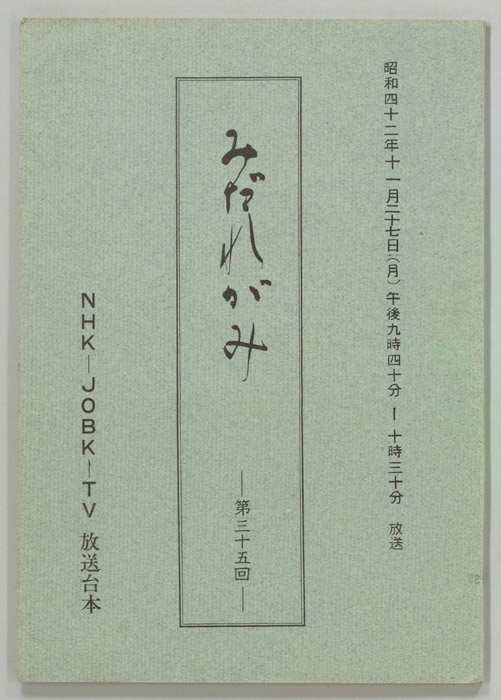 昭和四十二年十一月二十七日（月）午後九時四十分ー十時三十分　放送
みだれがみ
―第三十五回―
NHK―JOBK―TV　放送台本